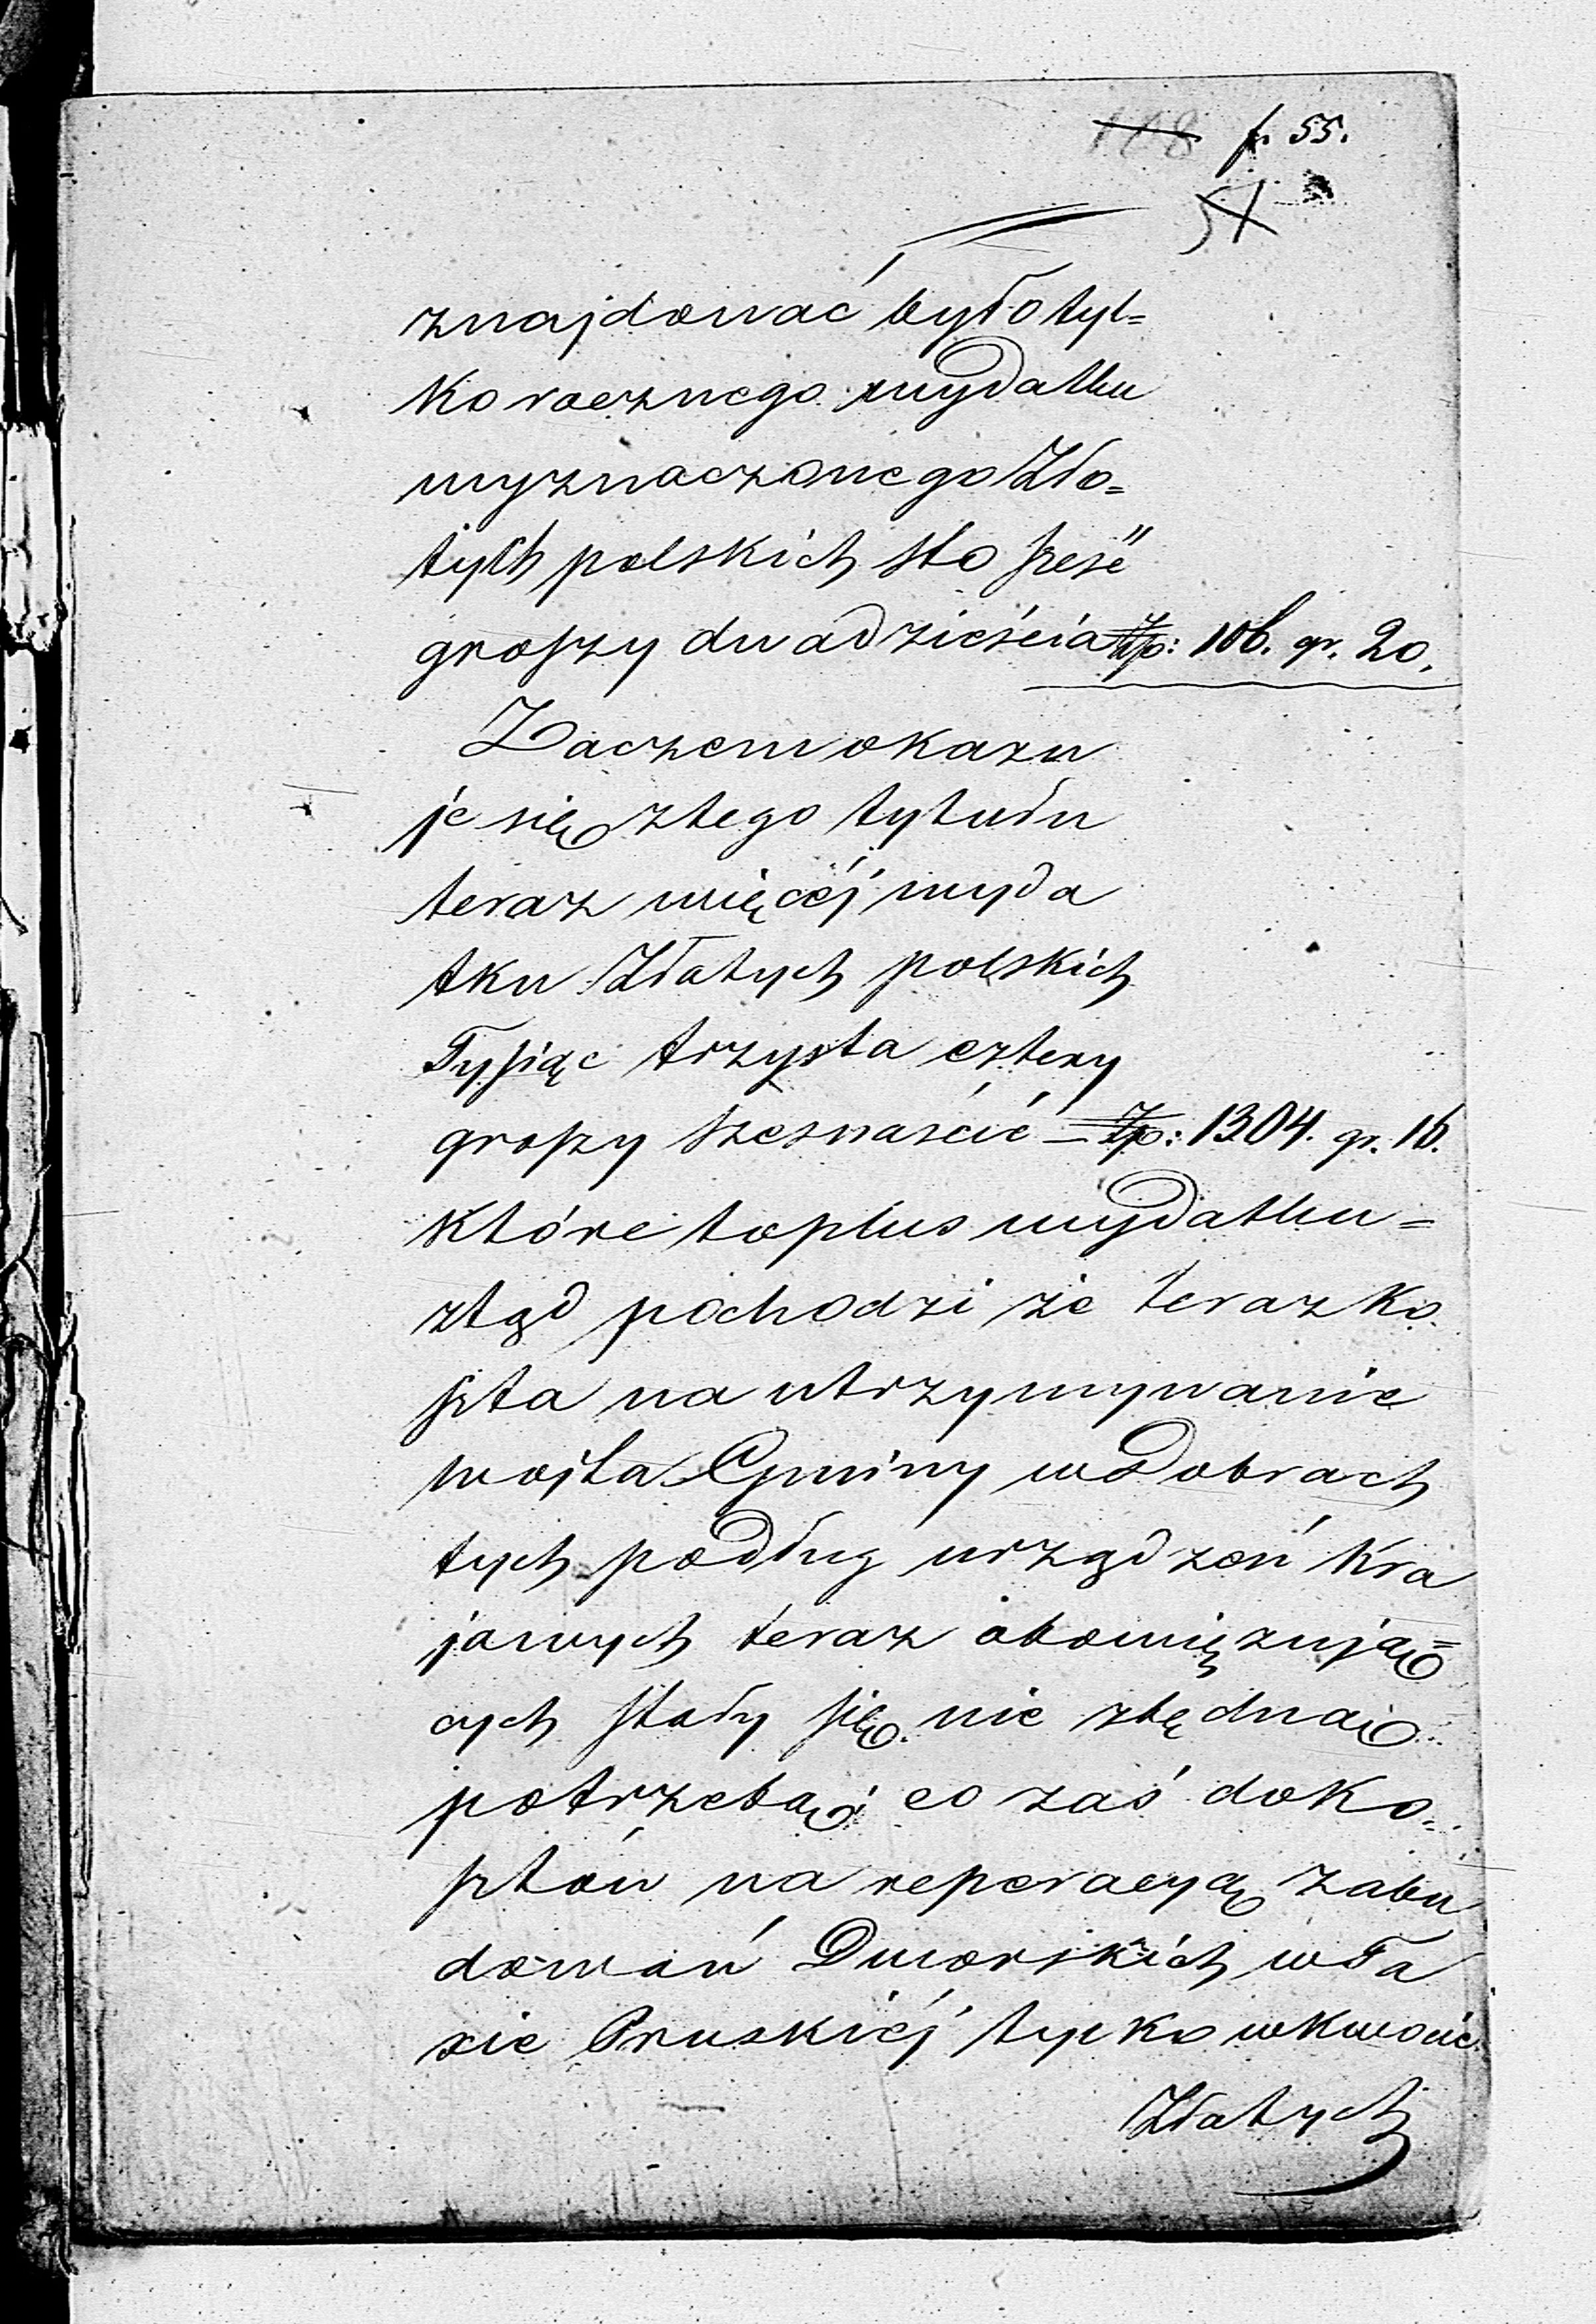 108 f. 55.
51
znajdować było tyl=
ko rocznego wydatku
wyznaczonego Zło=
tych polskich sto sześć
groszy dwadzieścia Złp: 106. gr. 20.
Zaczem okazu
je się ztego tytułu
teraz więcéj wyda
tku Złotych polskich
Tysiąc trzysta cztery
groszy szesnaście – Złp: 1304. gr. 16.
które to plus wydatku =
ztąd pochodzi że teraz ko
szta na utrzymywanie
wojta Gminy w Dobrach
tych podług urządzeń Kra
jowych teraz obowięzują=
cych stały się nie zbędnaią
potrzebaą; co zaś do ko=
sztów na reperacyą zabu
dowań Dworskich w Ła
sie Pruskiéj tylko w kwocie
Złotych